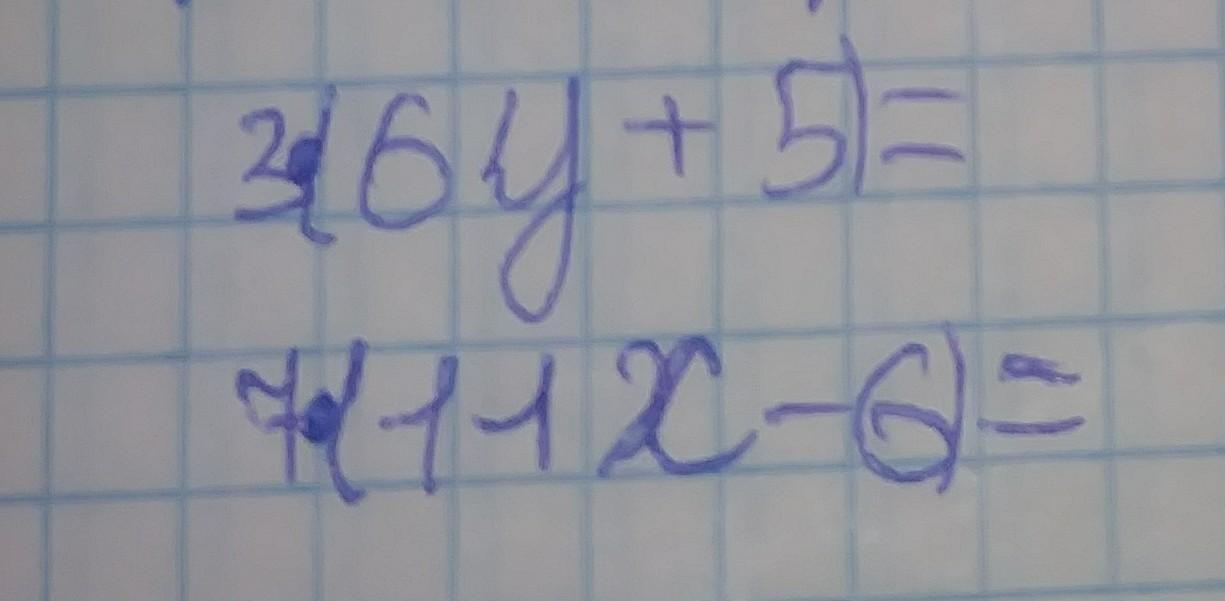 3·(6y+5)=
7·(11x-6)=